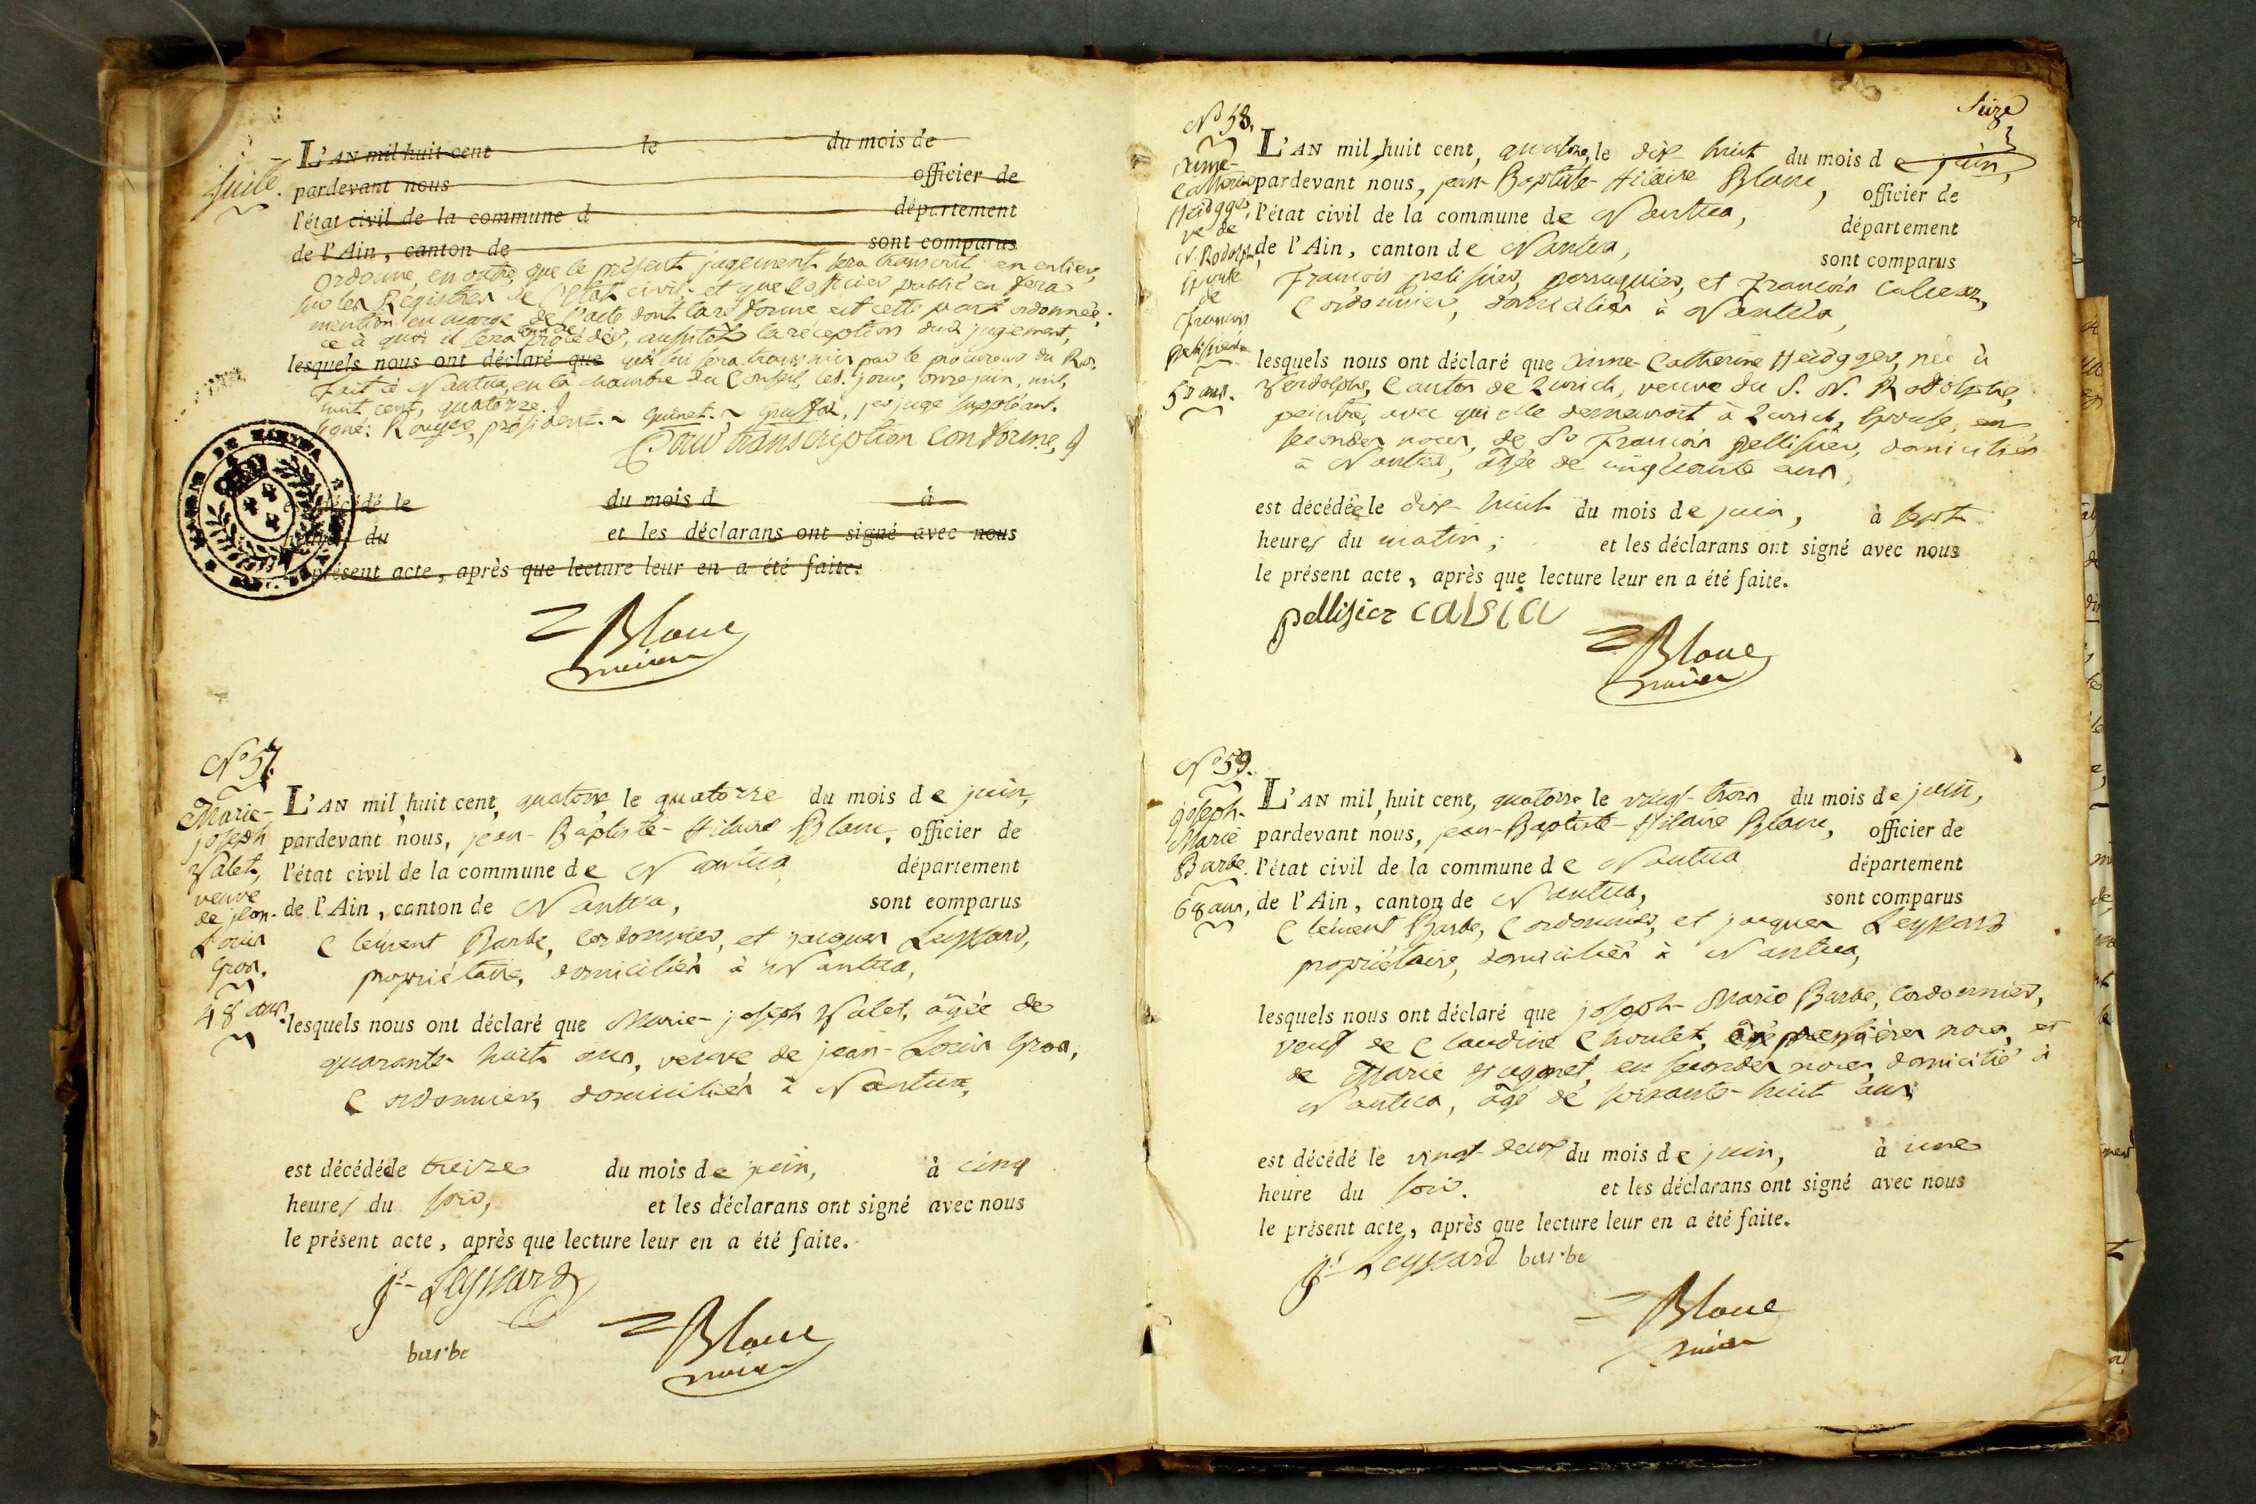 Suite.
L'AN mil huit cent le du mois de
pardevant nous officier de
l'état civil de la commune d département
de l'Ain, canton de sont comparus
ordonne, en outre, que le présent jugement sera transcrit en entier,
sur les Registres de l'état civil et que l'officier public en fera
mention en marge de l'acte dont la réforme est cette part ordonnée;
ce à quoi il sera procédé, aussitôt la réception du jugement,
lesquels nous ont déclaré que qui lui sera transmis par le procureur du Roi.
Fait à Nantua, en la chambre du Conseil, les. jour, onze juin, mil,
huit cent, quatorze.
Signé: Rouyer, président. Guinet. 1er juge suppléant.
Pour transcription conforme,
MAIRIE DE NANTUA
décédé le du mois d à
heure du et les déclarans ont signé avec nous
présent acte, après que lecture leur en a été faite.
Blanc
maire
N° 57.
Marie-
joseph
Valet,
veuve
de jean-
Louis
Gros.
48 ans.
L'AN mil huit cent, quatorze le quatorze du mois de juin,
pardevant nous, jean-Baptiste-Hilaire Blanc, officier de
l'état civil de la commune de Nantua département
de l'Ain, canton de Nantua, sont comparus
Clément Barbe, Cordonnier, et jacques Leyssard,
propriétaire, domiciliés à Nantua,
lesquels nous ont déclaré que Marie-joseph Valet, âgée de
quarante-huit ans, veuve de jean-Louis Gros,
Cordonnier, domiciliés à Nantua,
est décédée le treize du mois de juin, à cinq
heures du soir, et les déclarans ont signé avec nous
le présent acte, après que lecture leur en a été faite.
js Leyssard
barbe
Blanc
maire
Seize
N° 58.
Anne-
Catherine
Heidgger,
ve de
N. Rodolphe,
épouse
de
François
Pelissier
50 ans.
L'AN mil huit cent, quatorze, le dix-huit du mois de juin,
pardevant nous, jean-Baptiste-Hilaire Blanc, officier de
l'état civil de la commune de Nantua, département
de l'Ain, canton de Nantua, sont comparus
François pelissier, perruquier, et François
Cordonnier, domiciliés à Nantua,
lesquels nous ont déclaré que Anne-Catherine Heidgger, née à
Canton de Zurich, veuve du S. N. Rodolphe,
peintre, avec qui elle demeurait à Zurich, épouse, en
secondes noces, de Sr François pellissier, domiciliés
à Nantua, âgée de cinquante ans,
est décédée le dix-huit du mois de juin, à sept
heures du matin; et les déclarans ont signé avec nous
le présent acte, après que lecture leur en a été faite.
pellisier calsia
Blanc
maire
N° 59.
joseph-
Marie
Barbe.
68 ans,
L'AN mil huit cent, quatorze le vingt-trois du mois de juin,
pardevant nous, jean-Baptiste-Hilaire Blanc, officier de
l'état civil de la commune de Nantua département
de l'Ain, canton de Nantua, sont comparus
Clément Barbe, Cordonnier, et jacques Leyssard
propriétaire, domiciliés à Nantua,
lesquels nous ont déclaré que joseph-Marie Barbe, Cordonnier,
veuf de Claudine Choulet, en premières noces, et
de Marie en secondes noces, domicilié à
Nantua, âgé de soixante-huit ans,
est décédé le vingt-deux du mois de juin, à une
heure du soir. et les déclarans ont signé avec nous
le présent acte, après que lecture leur en a été faite.
js Leyssard barbe
Blanc
maire